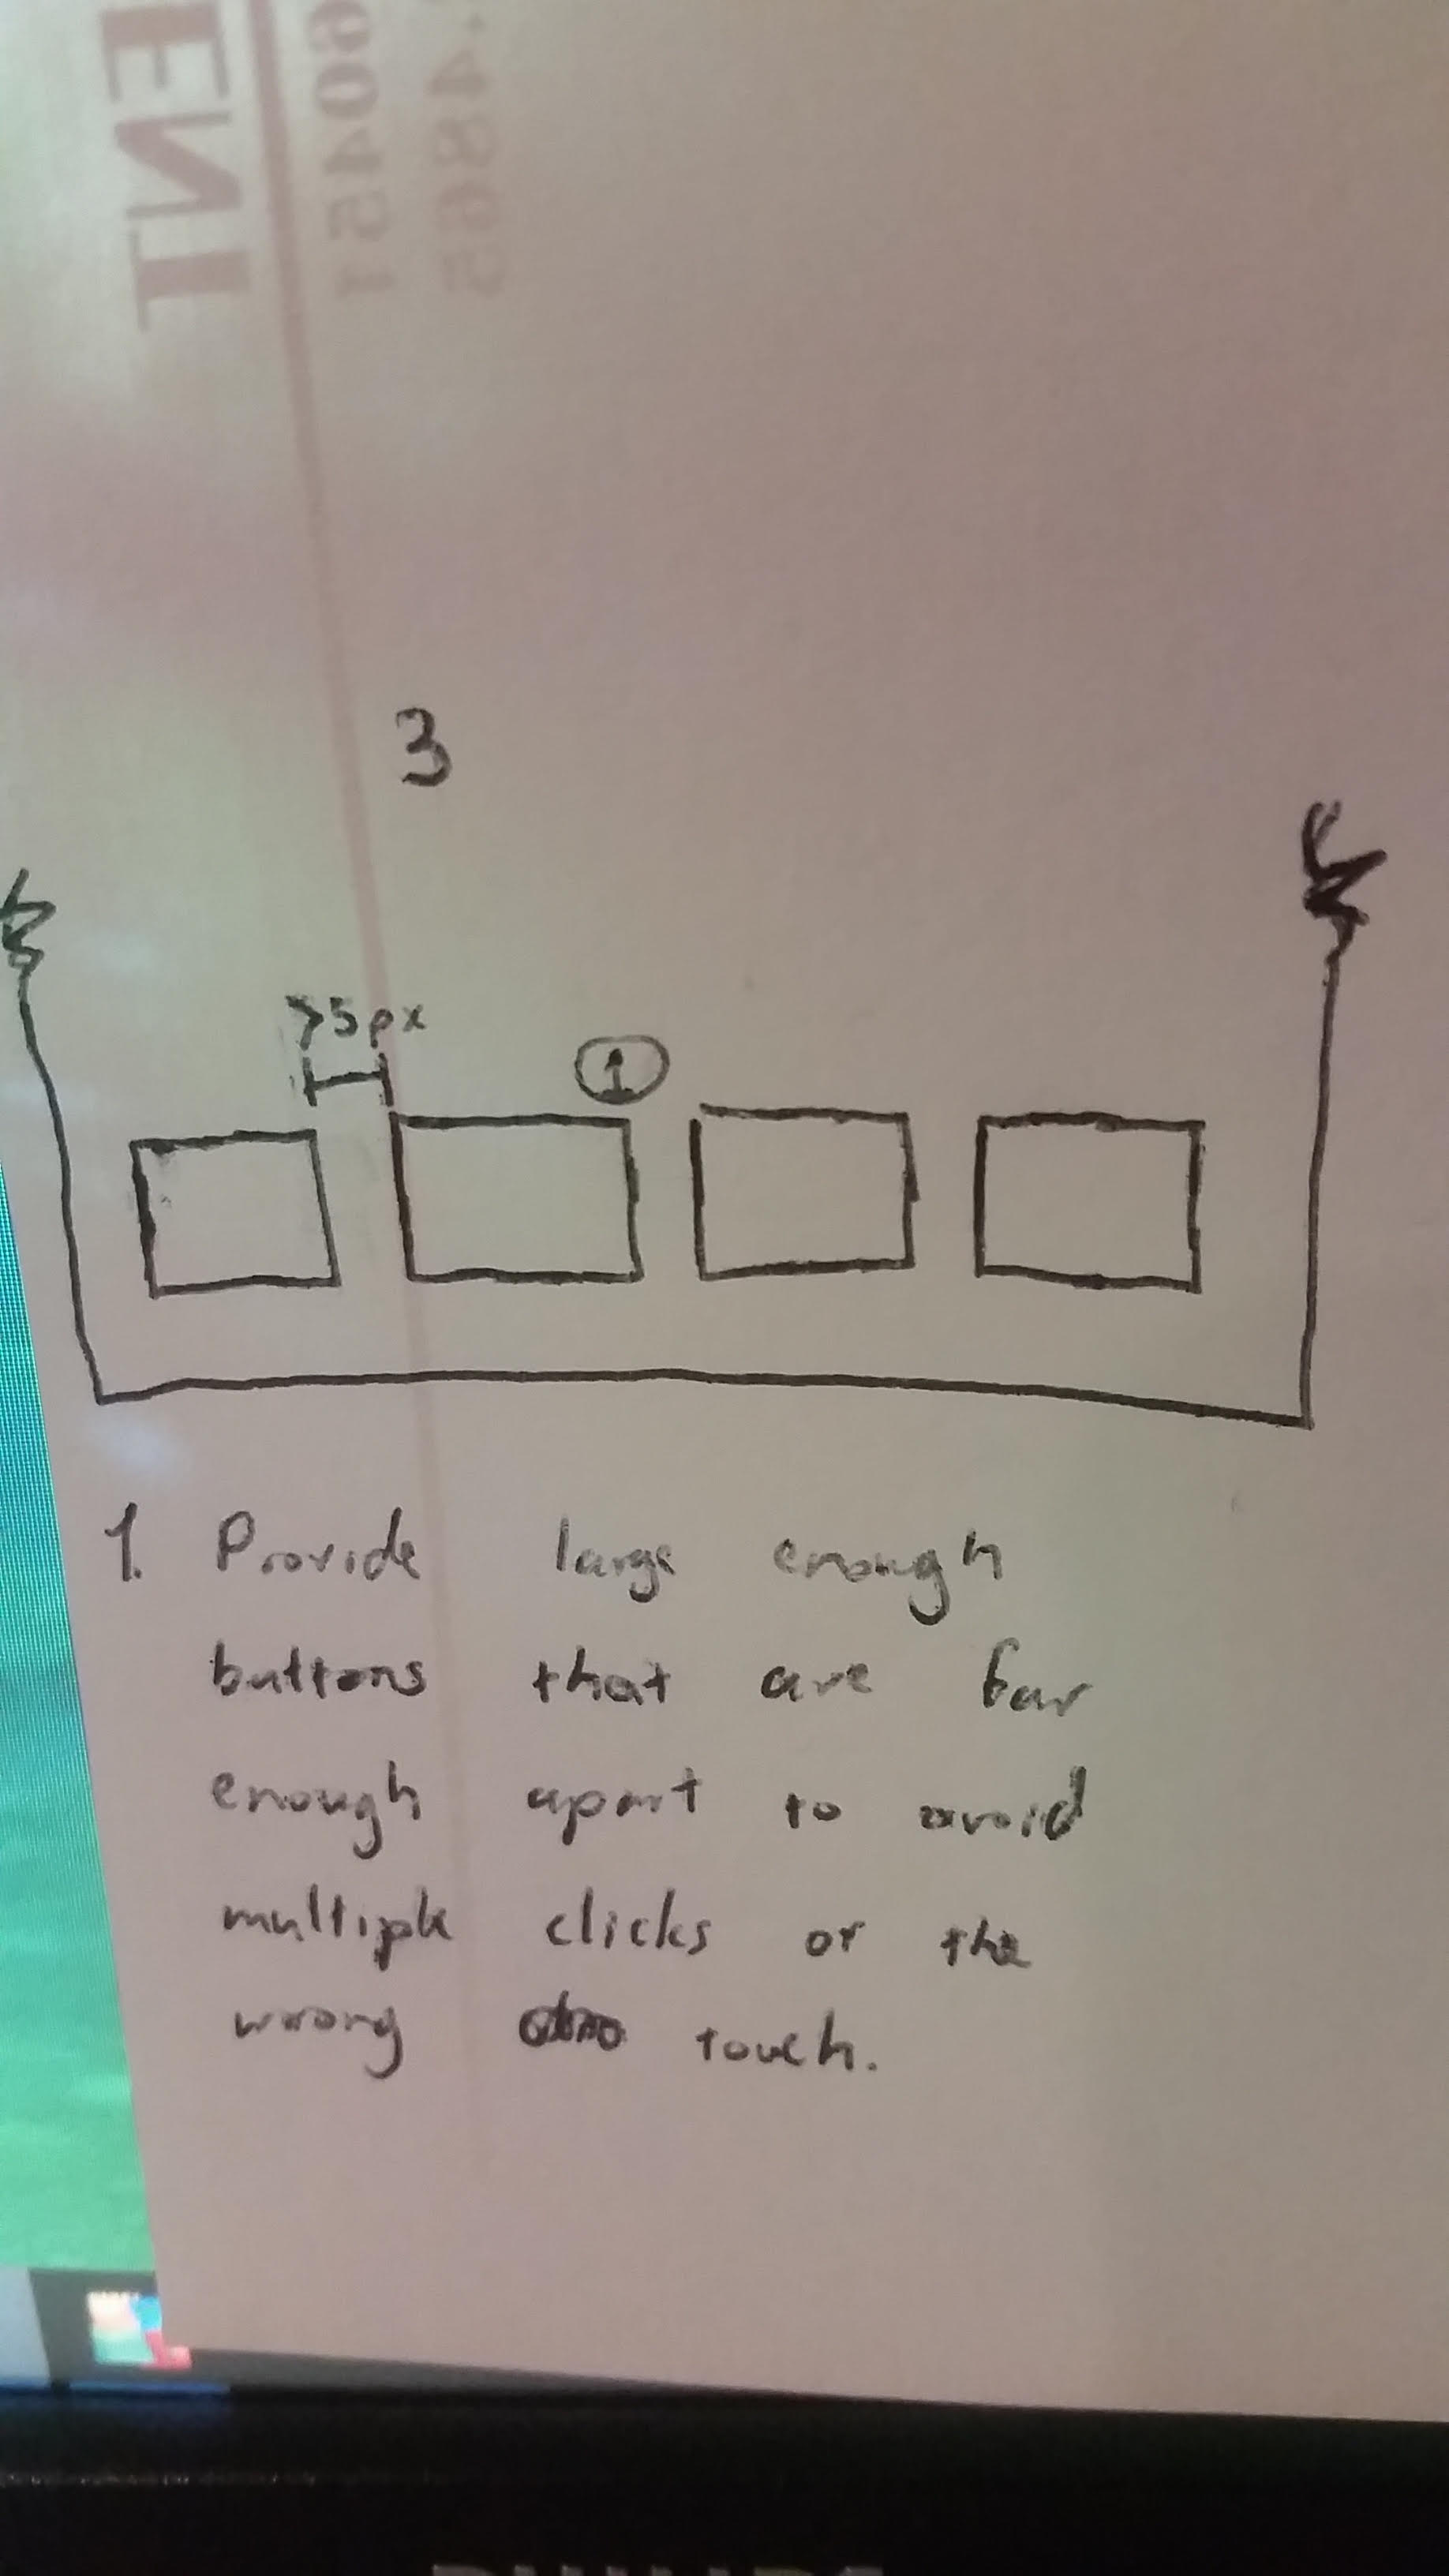 ENT
60451
.4865
3
>5px
1
1. Provide large enough
buttons that are far
enough apart to avoid
multiple clicks or the
wrong touch.